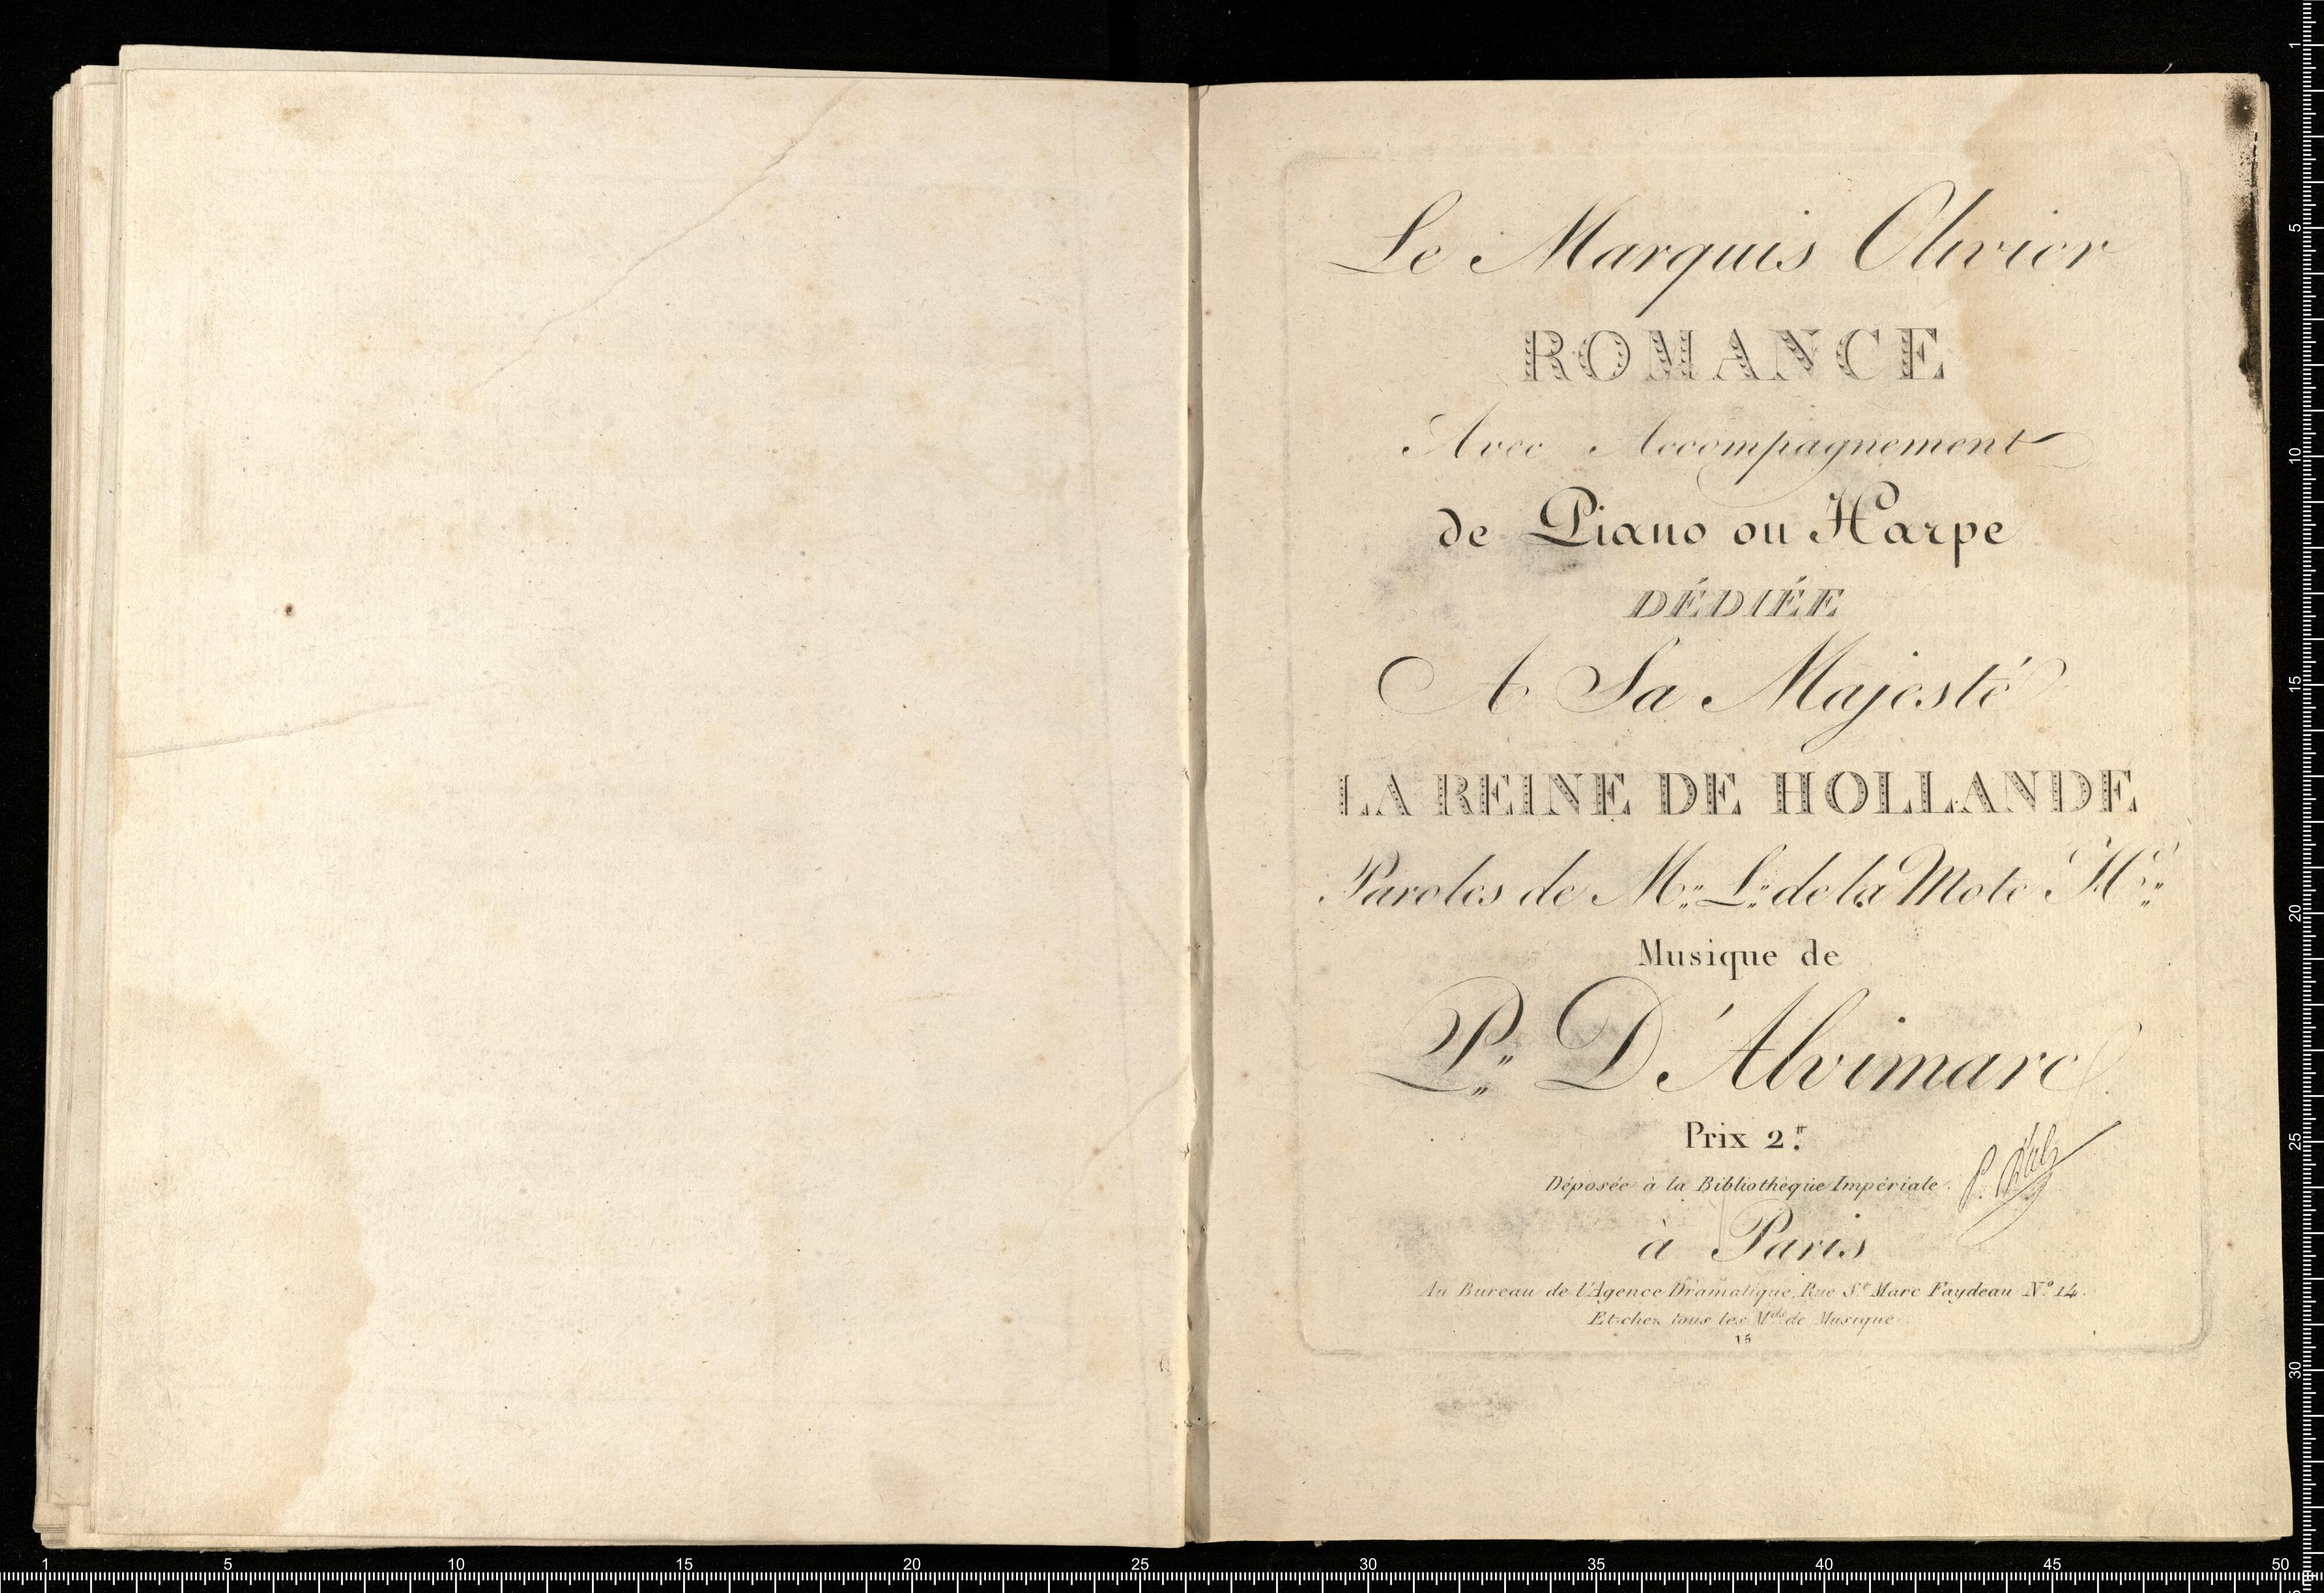 Le Marquis Olivier
ROMANCE
Avec Accompagnement
de Piano ou Harpe
DÉDIÉE
A Sa Majesté
LA REINE DE HOLLANDE
Paroles de M.r L.s de la Mote H.n
Musique de
P.e D'Alvimare
Prix 2.tt
Déposée à la Bibliothèque Impériale.
à Paris
Au Bureau de l'Agence Dramatique, Rue S.t Marc Faydeau N.o 14.
Et chez tous les M.ds de Musique
15
1 5 10 15 20 25 30 35 40 45 50
1 5 10 15 20 25 30